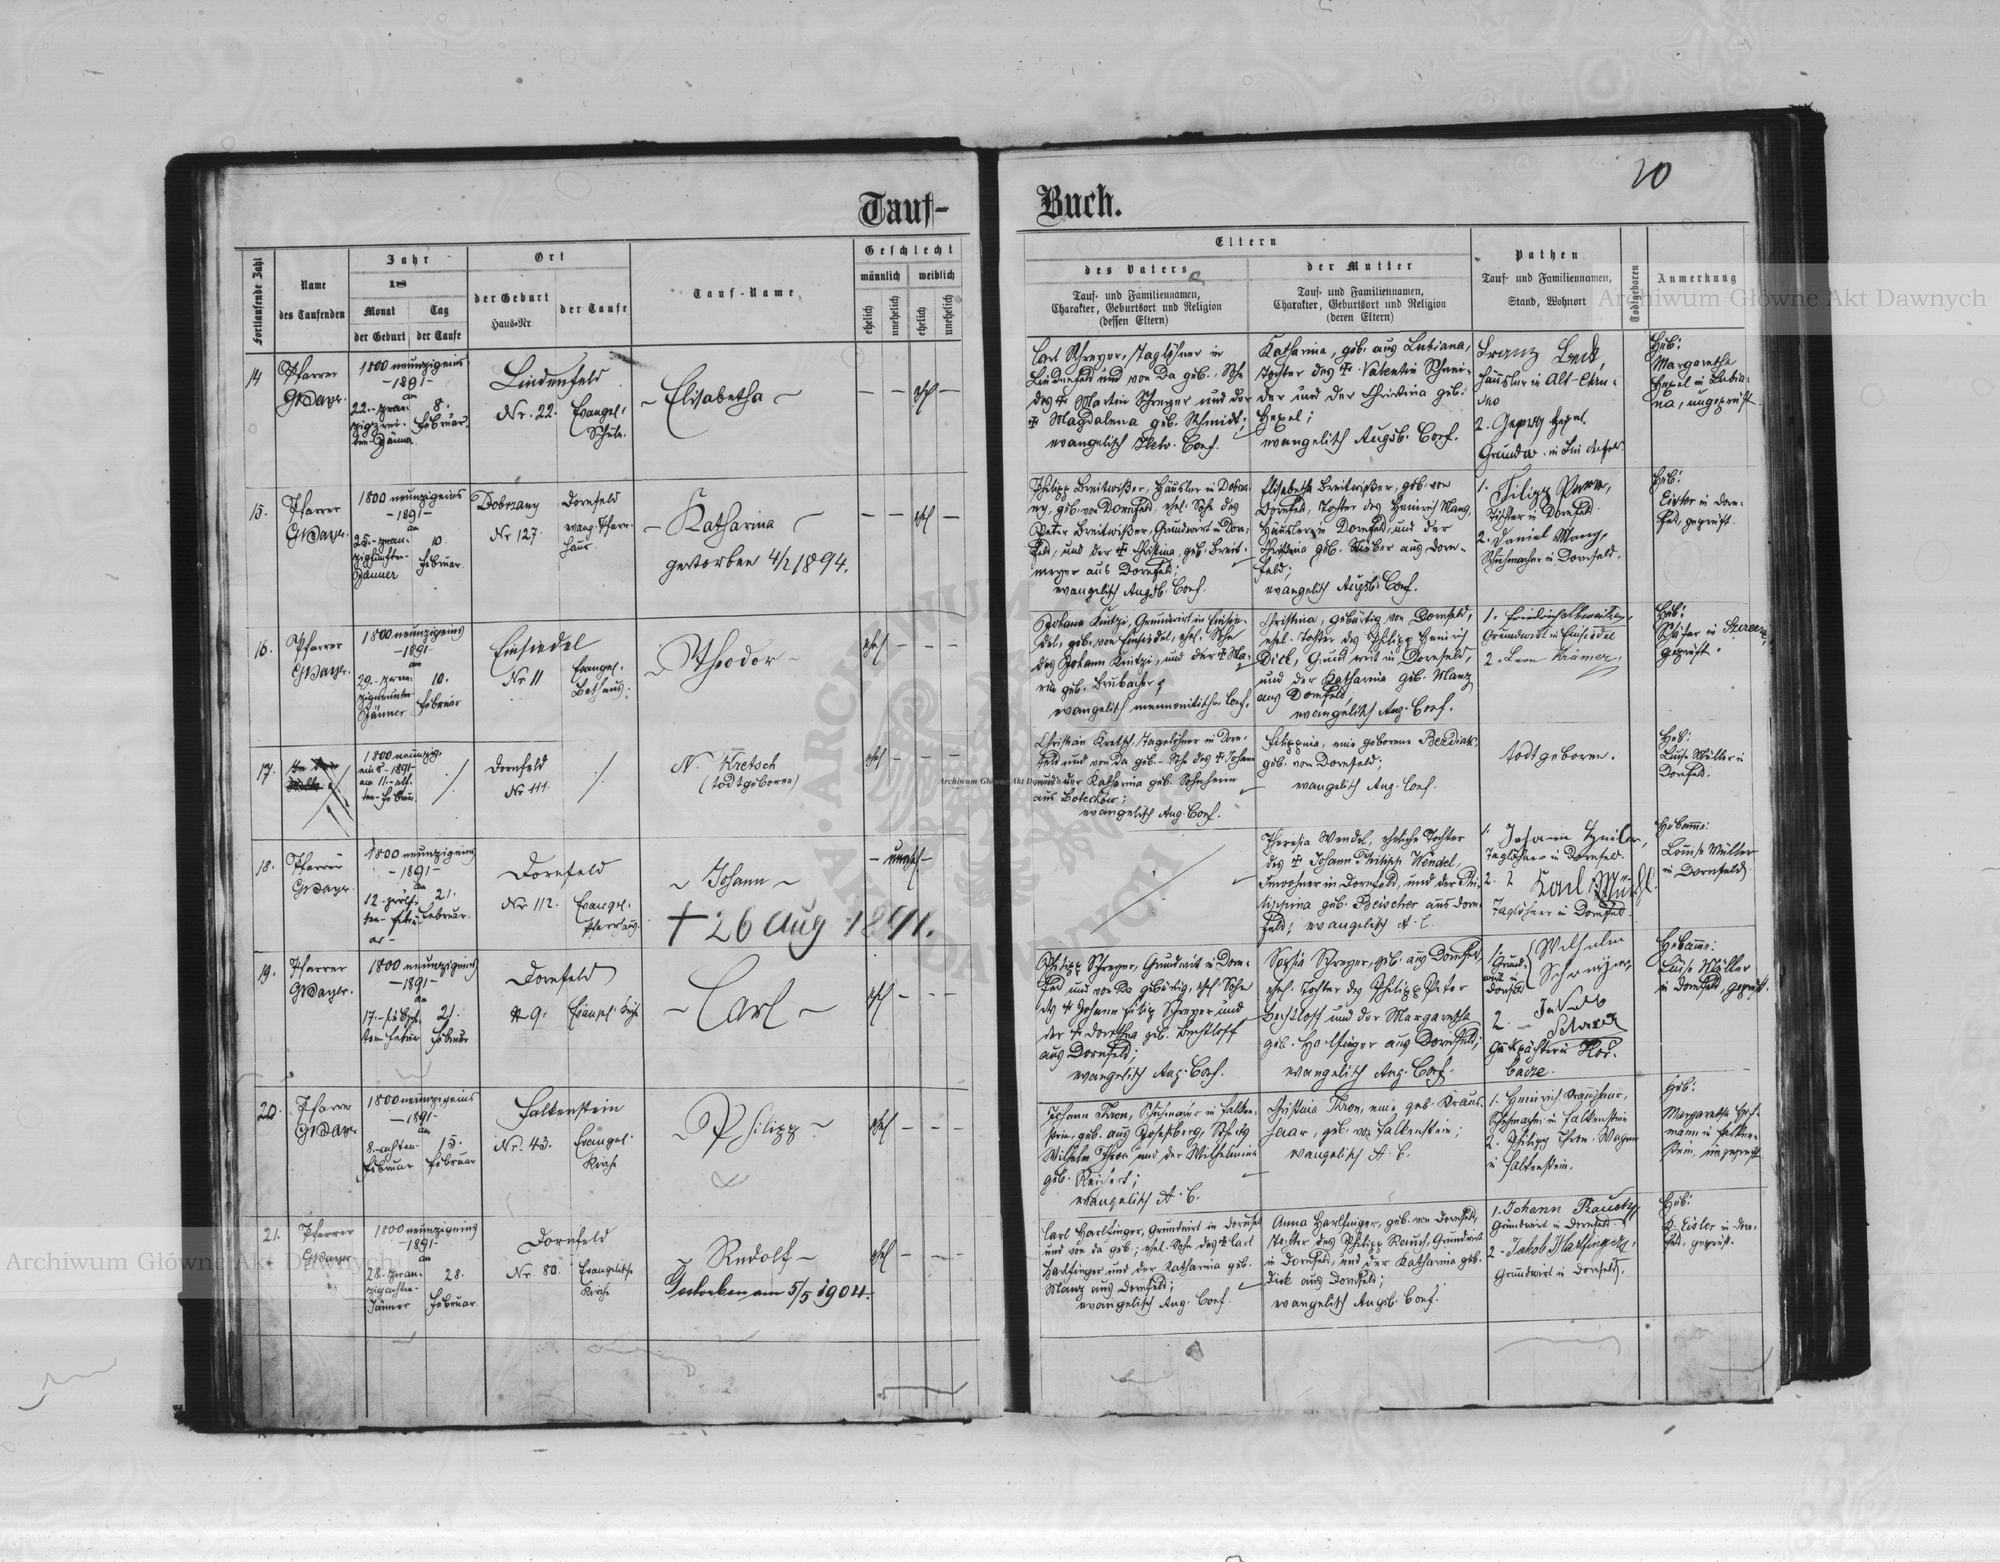 20
Tauf-
Buch.
Fortlaufende Zahl
Name
des Taufenden
Jahr
18
Monat
Tag
der Geburt
der Taufe
Ort
der Geburt
Haus-Nr.
der Taufe
Tauf-Name,
Geschlecht
männlich
weiblich
ehelich
unehelich
ehelich
unehelich
Eltern
des Vaters
Tauf- und Familiennamen,
Charakter, Geburtsort und Religion
(dessen Eltern)
der Mutter
Tauf- und Familiennamen,
Charakter, Geburtsort und Religion
(deren Eltern)
Pathen
Tauf- und Familiennamen,
Stand, Wohnort
Todtgeboren
Anmerkung
14
Pfarrer
GMayr.
1800 neunzigeins
-1891-
am
22.-zwan-
zigzwei-
ten-Jänner
8.
Februar.
Lindenfeld
Nr. 22.
Evangel.
Schule.
- Elisabetha -
- - ehel -
Carl Schreyer, Taglöhner in
Lindenfeld und von da geb., Sohn
des † Martin Schreyer und der
† Magdalena geb. Schmidt;
evangelisch Helv. Conf.
Katharina, geb. aus Lubiana,
Tochter des † Valentin Schnei-
der und der Christina geb.
Hexel;
evangelisch Augsb. Conf.
Franz Beck,
Häusler in Alt-Chru-
sno
2. Georg Hexel
Grundw. in Lindenfeld
Heb:
Margaretha
Hexel in Lubia-
na, ungeprüft.
15.
Pfarrer
GMayr.
1800 neunzigeins
-1891-
am
25.-zwan-
zigfünften-
Jänner
10.
Februar.
Dobrzany
Nr 127.
Dornfeld
evang. Pfarr-
haus.
- Katharina -
gestorben 4/2 1894.
- - ehel -
Philipp Breitwißer, Häusler in Dobrza-
ny, geb. von Dornfeld, ehel. Sohn des
Peter Breitwißer, Grundwirt in Dorn-
feld, und der † Christina, geb. Breit-
meyer aus Dornfeld;
evangelisch Augsb. Conf.
Elisabetha Breitwißer, geb. von
Dornfeld, Tochter des Heinrich Manz,
Häusler in Dornfeld, und der
Christina geb. Stuber aus Dorn-
feld;
evangelisch Augsb. Conf.
1. Filipp Parr,
Tischler in Dornfeld
2. Daniel Manz,
Schuhmacher in Dornfeld.
Heb:
Eisler in Dorn-
feld, geprüft.
16.
Pfarrer
GMayr.
1800 neunzigeins
-1891-
am
29.-zwan-
zigneunten-
Jänner
10.
Februar
Einsiedel
Nr 11
Evangel.
Bethaus;
- Theodor -
ehel - - -
Johann Kintzi, Grundwirt in Einsie-
del, geb. von Einsiedel, ehel. Sohn
des Johann Kintzi, und der † Ma-
ria geb. Brubacher;
evangelisch mennonitischer Conf.
Christina, gebürtig von Dornfeld,
ehel. Tochter des Philipp Heinrich
Dick, Grundwirt in Dornfeld,
und der Katharina geb. Manz
aus Dornfeld;
evangelisch Aug. Conf.
Grundwirt in Einsiedel
2. Leon Krämer,
Heb:
Schäfer in Szczerec,
geprüft.
17.
1800 neunzig-
eins -1891-
am 11.-elf-
ten-Februar
Dornfeld
Nr 111.
N. Kretsch
(todtgeboren)
ehel - - -
Christian Kretsch, Tagelöhner in Dorn-
feld und von da geb.- Sohn des † Johann
und der Katharina geb. Sohnheim
evangelisch Aug. Conf.
Filippina, eine geborene Bezdiak,
geb. von Dornfeld;
evangelisch Aug. Conf.
todtgeboren.
Heb:
Luise Müller in
Dornfeld.
18.
Pfarrer
GMayr.
1800 neunzigeins
-1891-
am
12.-zwölf-
ten-Febru-
ar-
21.
Februar.
Dornfeld
Nr 112.
Evangel.
Pfarrhaus.
- Johann -
† 26 Aug 1891.
- unehel -
Theresia Wendel, eheliche Tochter
des † Johann Philipp Wendel,
Inwohner in Dornfeld, und der Phi-
lippina geb. Beischer aus Dorn-
feld; evangelisch A. C.
Taglöhner in Dornfeld.
2. Karl Mühl
Taglöhner in Dornfeld.
Hebamme:
Louise Müller
in Dornfeld
19.
Pfarrer
GMayr.
1800 neunzigeins
-1891-
am
17.-siebze-
ten-Februar
21.
Februar
Dornfeld
N 9.
Evangel. Kirche
- Carl -
ehel - - -
Philipp Schreyer, Grundwirt in Dorn-
feld und von da gebürtig, ehel. Sohn
des † Johann Filip Schreyer und
der † Dorothea geb. Bechtloff
aus Dornfeld;
evangelisch Aug. Conf.
Sophia Schreyer, geb. aus Dornfeld,
ehel. Tochter des Philipp Peter
Bechtloff und der Margaretha
geb. Harlfinger aus Dornfeld;
evangelisch Aug. Conf.
1. Grund-
wirt in
Dornfeld
Wilhelm
Schreyer
2. Jakob
Gutspächter in Hor-
bacze.
Hebamme:
Luise Müller
in Dornfeld, geprüft.
20.
Pfarrer
GMayr
1800 neunzigeins
-1891-
am
8.-achten-
Februar
15.
Februar
Falkenstein
Nr. 43.
Evangel.
Kirche
- Philipp -
ehel - - -
Johann Thron, Schuhmacher in Falken-
stein, geb. aus Josefsberg, Sohn des
Wilhelm Thron und der Wilhelmina
geb. Reichert;
evangelisch A. C.
Christina Thron, eine geb. Kraus-
haar, geb. von Falkenstein;
evangelisch A. C.
1. Heinrich Kraushaar,
Schuhmacher in Falkenstein
2. Philipp Thron, Wagner
in Falkenstein.
Heb:
Margaretha Hoff-
mann in Falken-
stein, ungeprüft
21.
Pfarrer
GMayr
1800 neunzigeins
-1891-
am
28.-zwan-
zigachten-
Jänner
28.
Februar.
Dornfeld
Nr. 80.
Evangelische
Kirche
- Rudolf -
Gestorben am 5/5 1904.
ehel - - -
Carl Harlfinger, Grundwirt in Dornfeld
und von da geb.; ehel. Sohn des † Carl
Harlfinger und der Katharina geb.
Manz aus Dornfeld;
evangelisch Aug. Conf.
Anna Harlfinger, geb. von Dornfeld,
Tochter des Philipp Rausch, Grundwirt
in Dornfeld, und der Katharina geb.
Dick aus Dornfeld;
evangelisch Augsb. Conf.
1. Johann Rausch,
Grundwirt in Dornfeld
2. Jakob Harlfinger,
Grundwirt in Dornfeld.
Heb:
K. Eisler in Dorn-
feld, geprüft.
Archiwum Główne Akt Dawnych
Archiwum Główne Akt Dawnych
Archiwum Główne Akt Dawnych